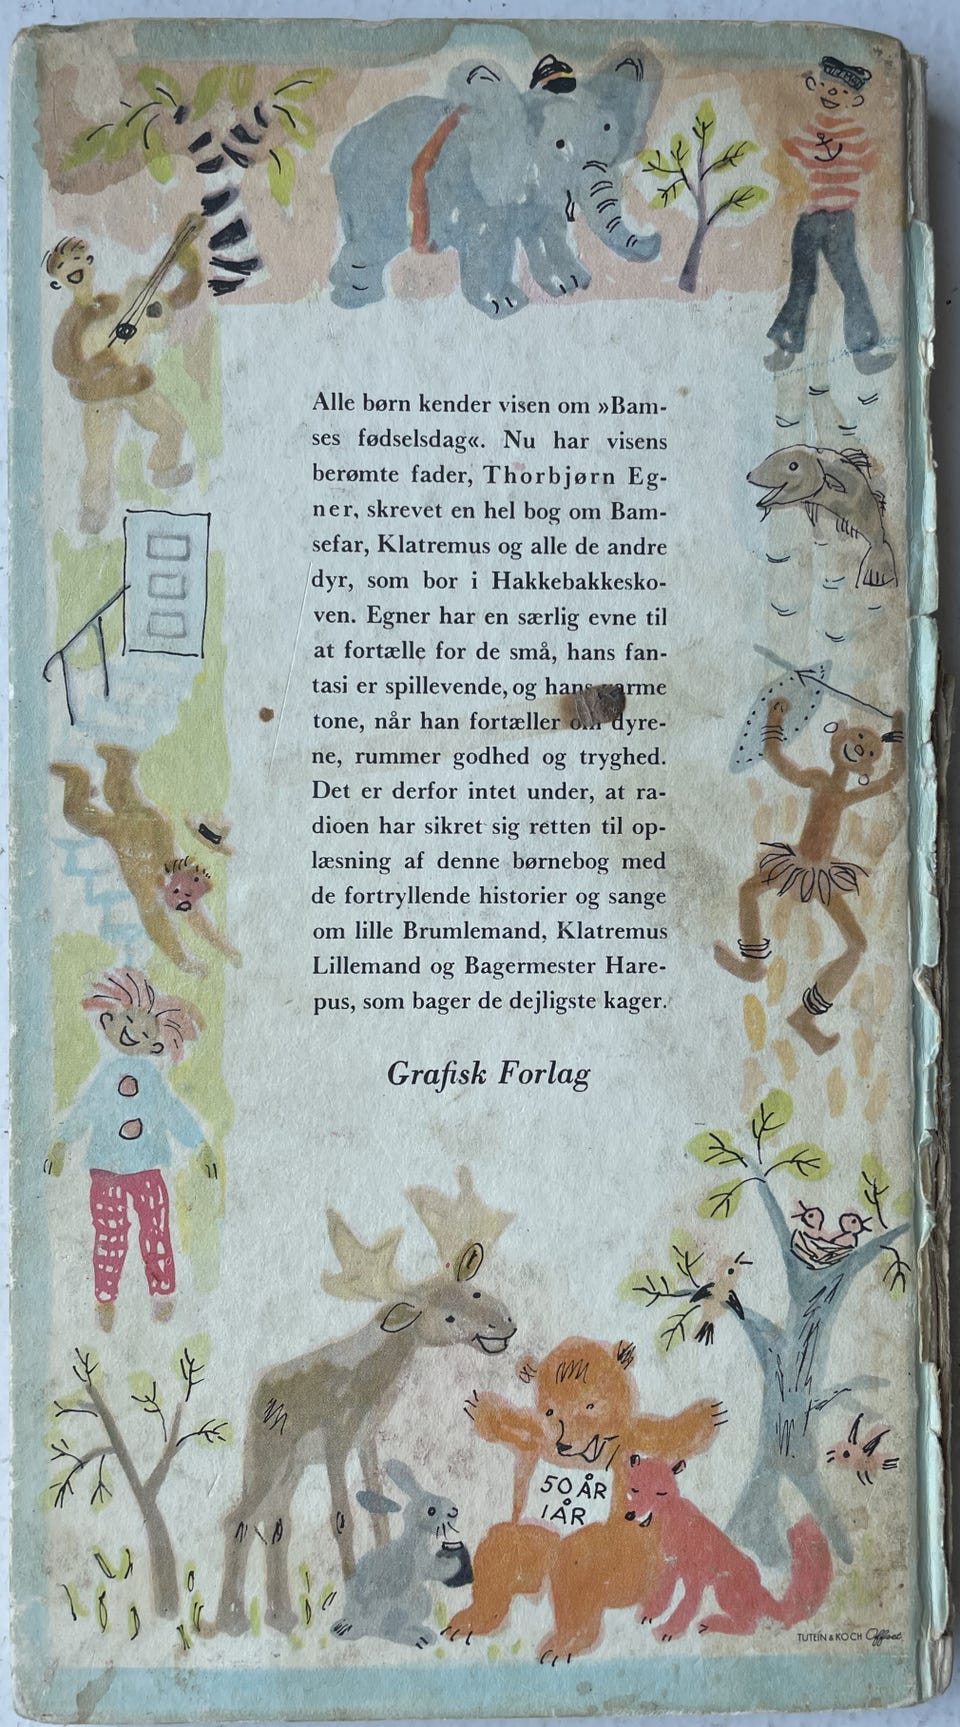 Alle børn kender visen om »Bam-
ses fødselsdag«. Nu har visens
berømte fader, Thorbjørn Eg-
ner, skrevet en hel bog om Bam-
sefar, Klatremus og alle de andre
dyr, som bor i Hakkebakkesko-
ven. Egner har en særlig evne til
at fortælle for de små, hans fan-
tasi er spillevende, og hans varme
tone, når han fortæller om dyre-
ne, rummer godhed og tryghed.
Det er derfor intet under, at ra-
dioen har sikret sig retten til op-
læsning af denne børnebog med
de fortryllende historier og sange
om lille Brumlemand, Klatremus
Lillemand og Bagermester Hare-
pus, som bager de dejligste kager.
Grafisk Forlag
50 ÅR
1 ÅR
TUTEIN & KOCH Offset